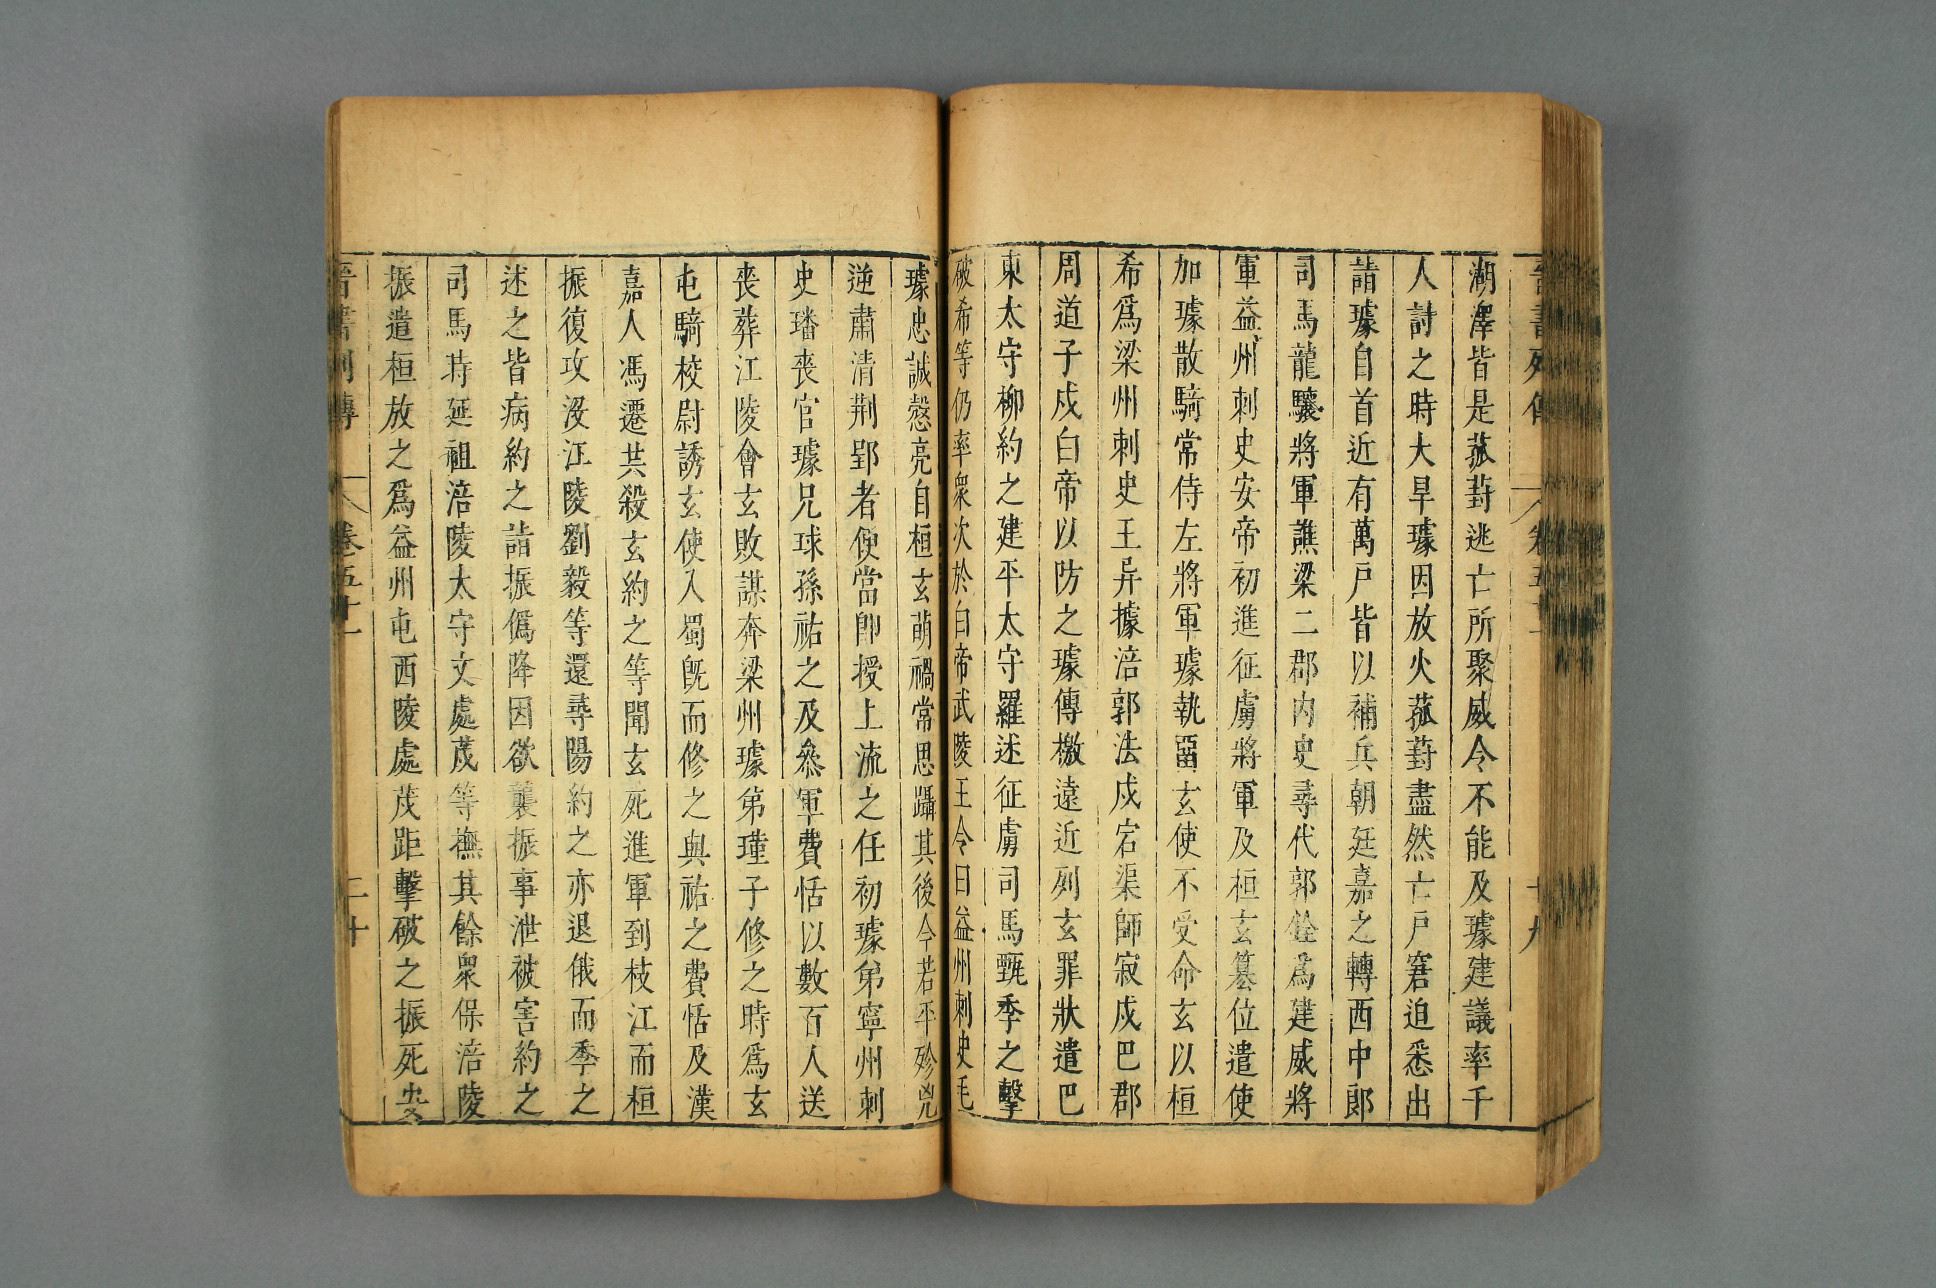 晉書列傳 卷五十一 十九
湖澤皆是菰葑逃亡所聚威令不能及璩建議率千
人討之時大旱璩因放火菰葑盡然亡戶窘迫悉出
詣璩自首近有萬戶皆以補兵朝廷嘉之轉西中郎
司馬龍驤將軍譙梁二郡內史尋代郭銓爲建威將
軍益州刺史安帝初進征虜將軍及桓玄篡位遣使
加璩散騎常侍左將軍璩執畱玄使不受命玄以桓
希爲梁州刺史王异據涪郭法戍宕渠師寂戍巴郡
周道子戍白帝以防之璩傳檄遠近列玄罪狀遣巴
東太守柳約之建平太守羅述征虜司馬甄季之擊
破希等仍率衆次於白帝武陵王令曰益州刺史毛
璩忠誠愨亮自桓玄萌禍常思躡其後今若平殄兇
逆肅清荆郢者便當卽授上流之任初璩弟寧州刺
史璠喪官璩兄球孫祐之及叅軍費恬以數百人送
喪葬江陵會玄敗謀奔梁州璩弟瑾子修之時爲玄
屯騎校尉誘玄使入蜀旣而修之與祐之費恬及漢
嘉人馮遷共殺玄約之等聞玄死進軍到枝江而桓
振復攻沒江陵劉毅等還尋陽約之亦退俄而季之
述之皆病約之詣振僞降因欲襲振事泄被害約之
司馬時延祖涪陵太守文處茂等撫其餘衆保涪陵
振遣桓放之爲益州屯西陵處茂距擊破之振死安
晉書列傳 卷五十一 二十